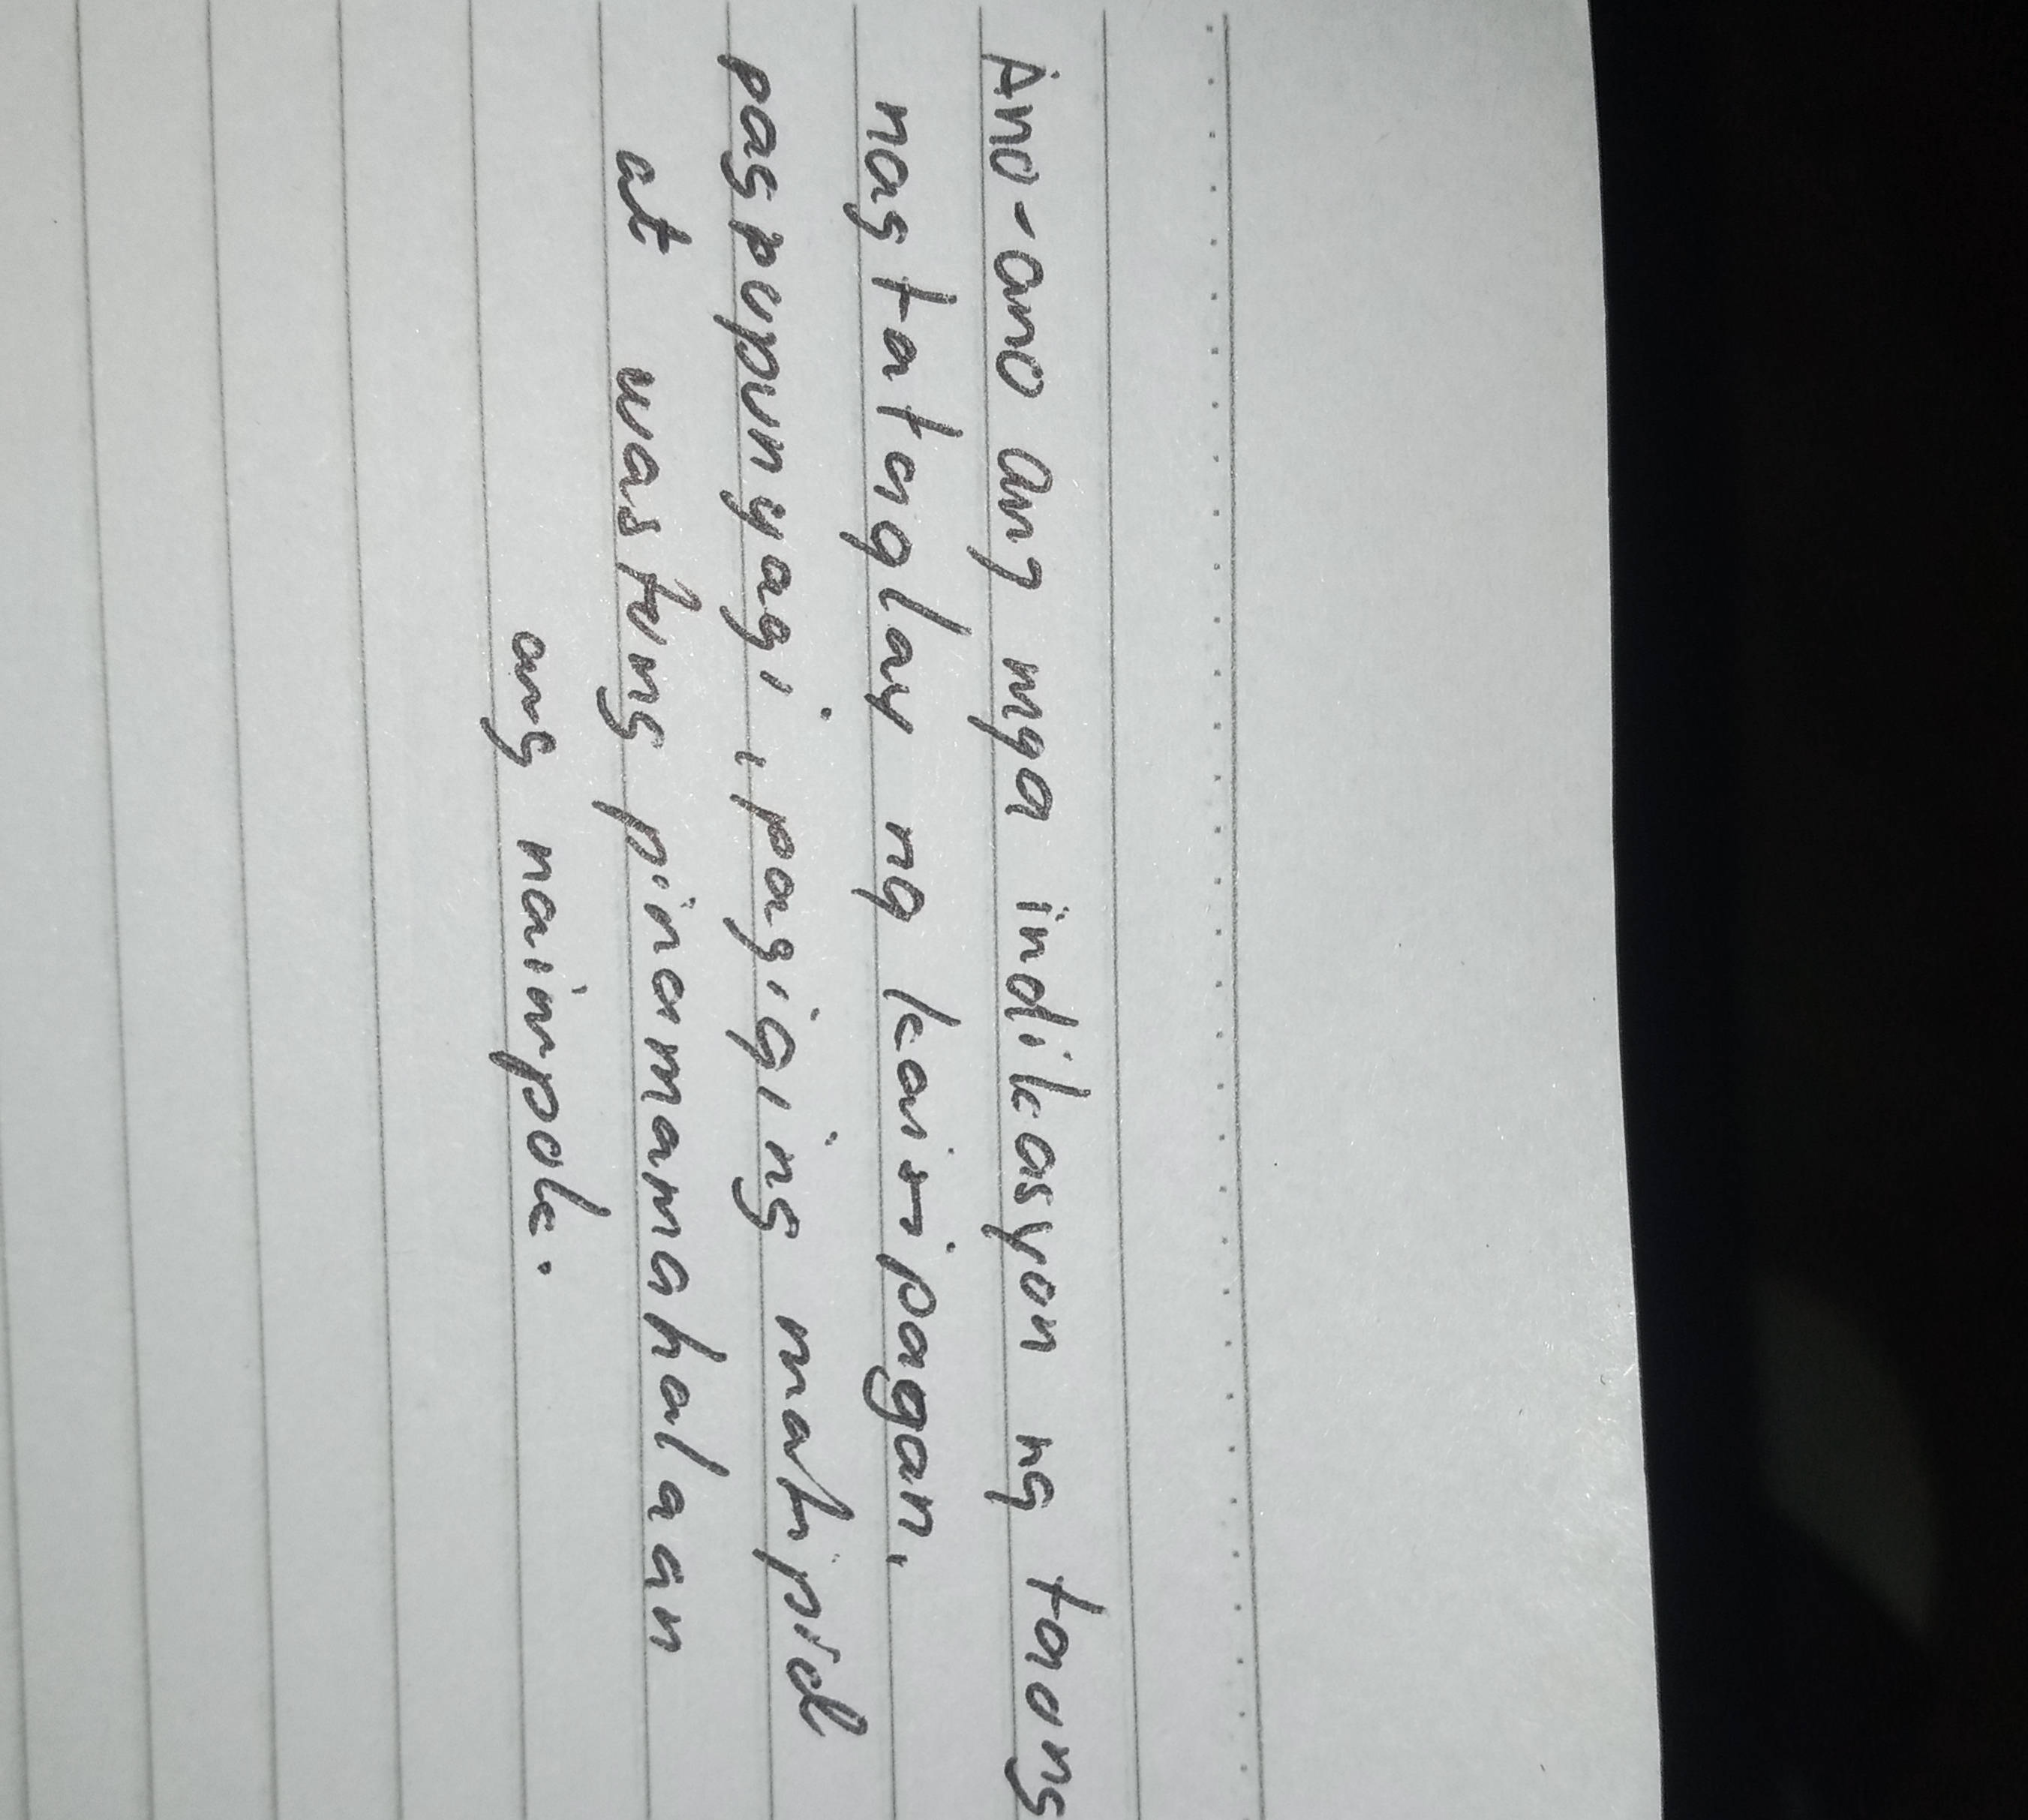 Ano-ano ang mga indikasyon ng taong
nagtataglay ng kasipagan,
pagpupunyagi, pagiging matipid
at wastong pinamamahalaan
ang naimpok.